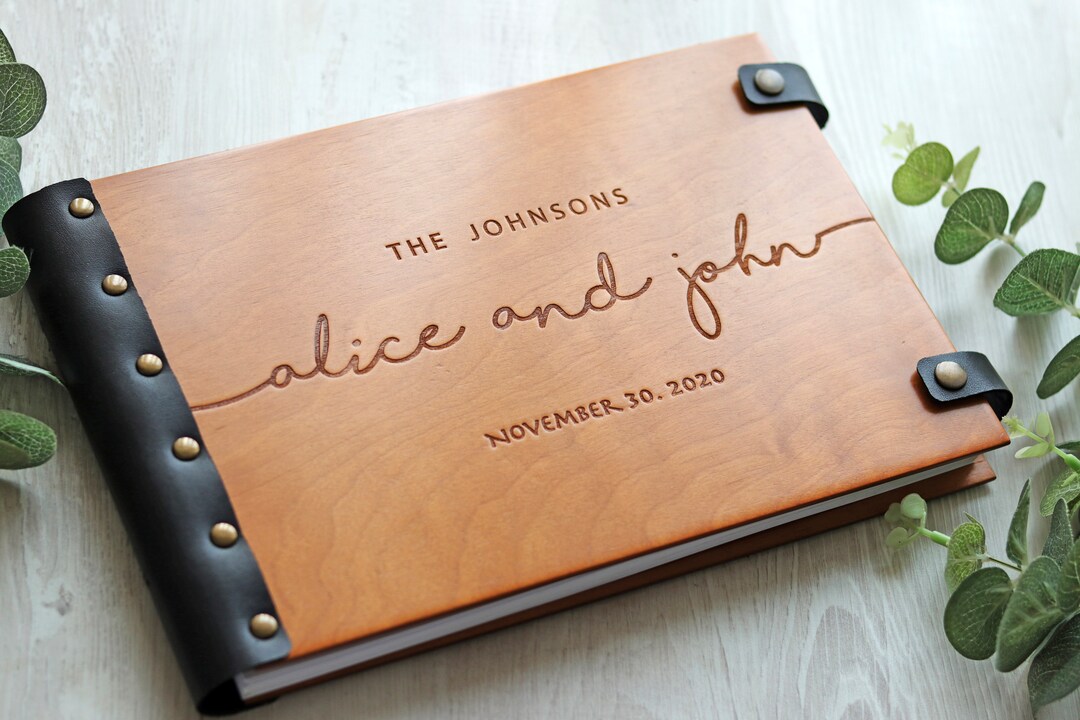 THE JOHNSONS
alice and john
NOVEMBER 30. 2020